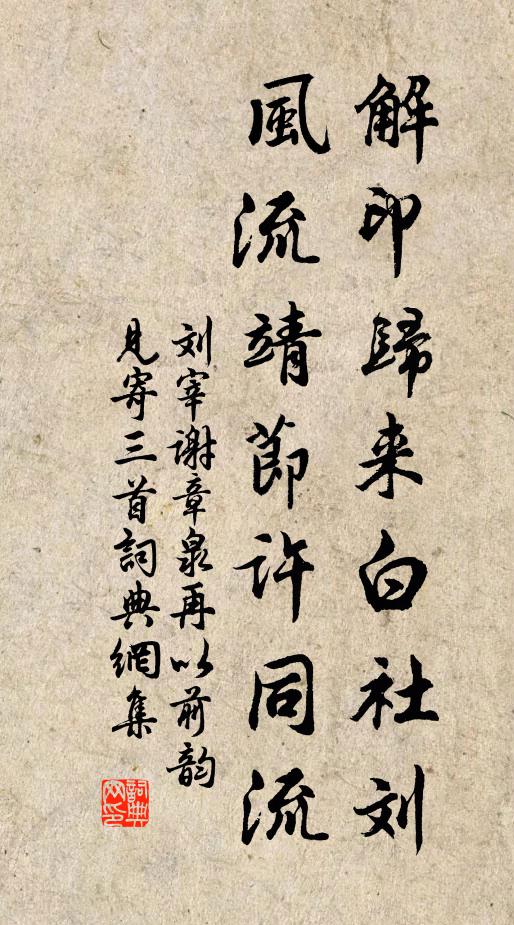 解印歸来白社刘
風流靖節许同流
刘宰谢章泉再以前韵
見寄三首詞典網集
詞典网印